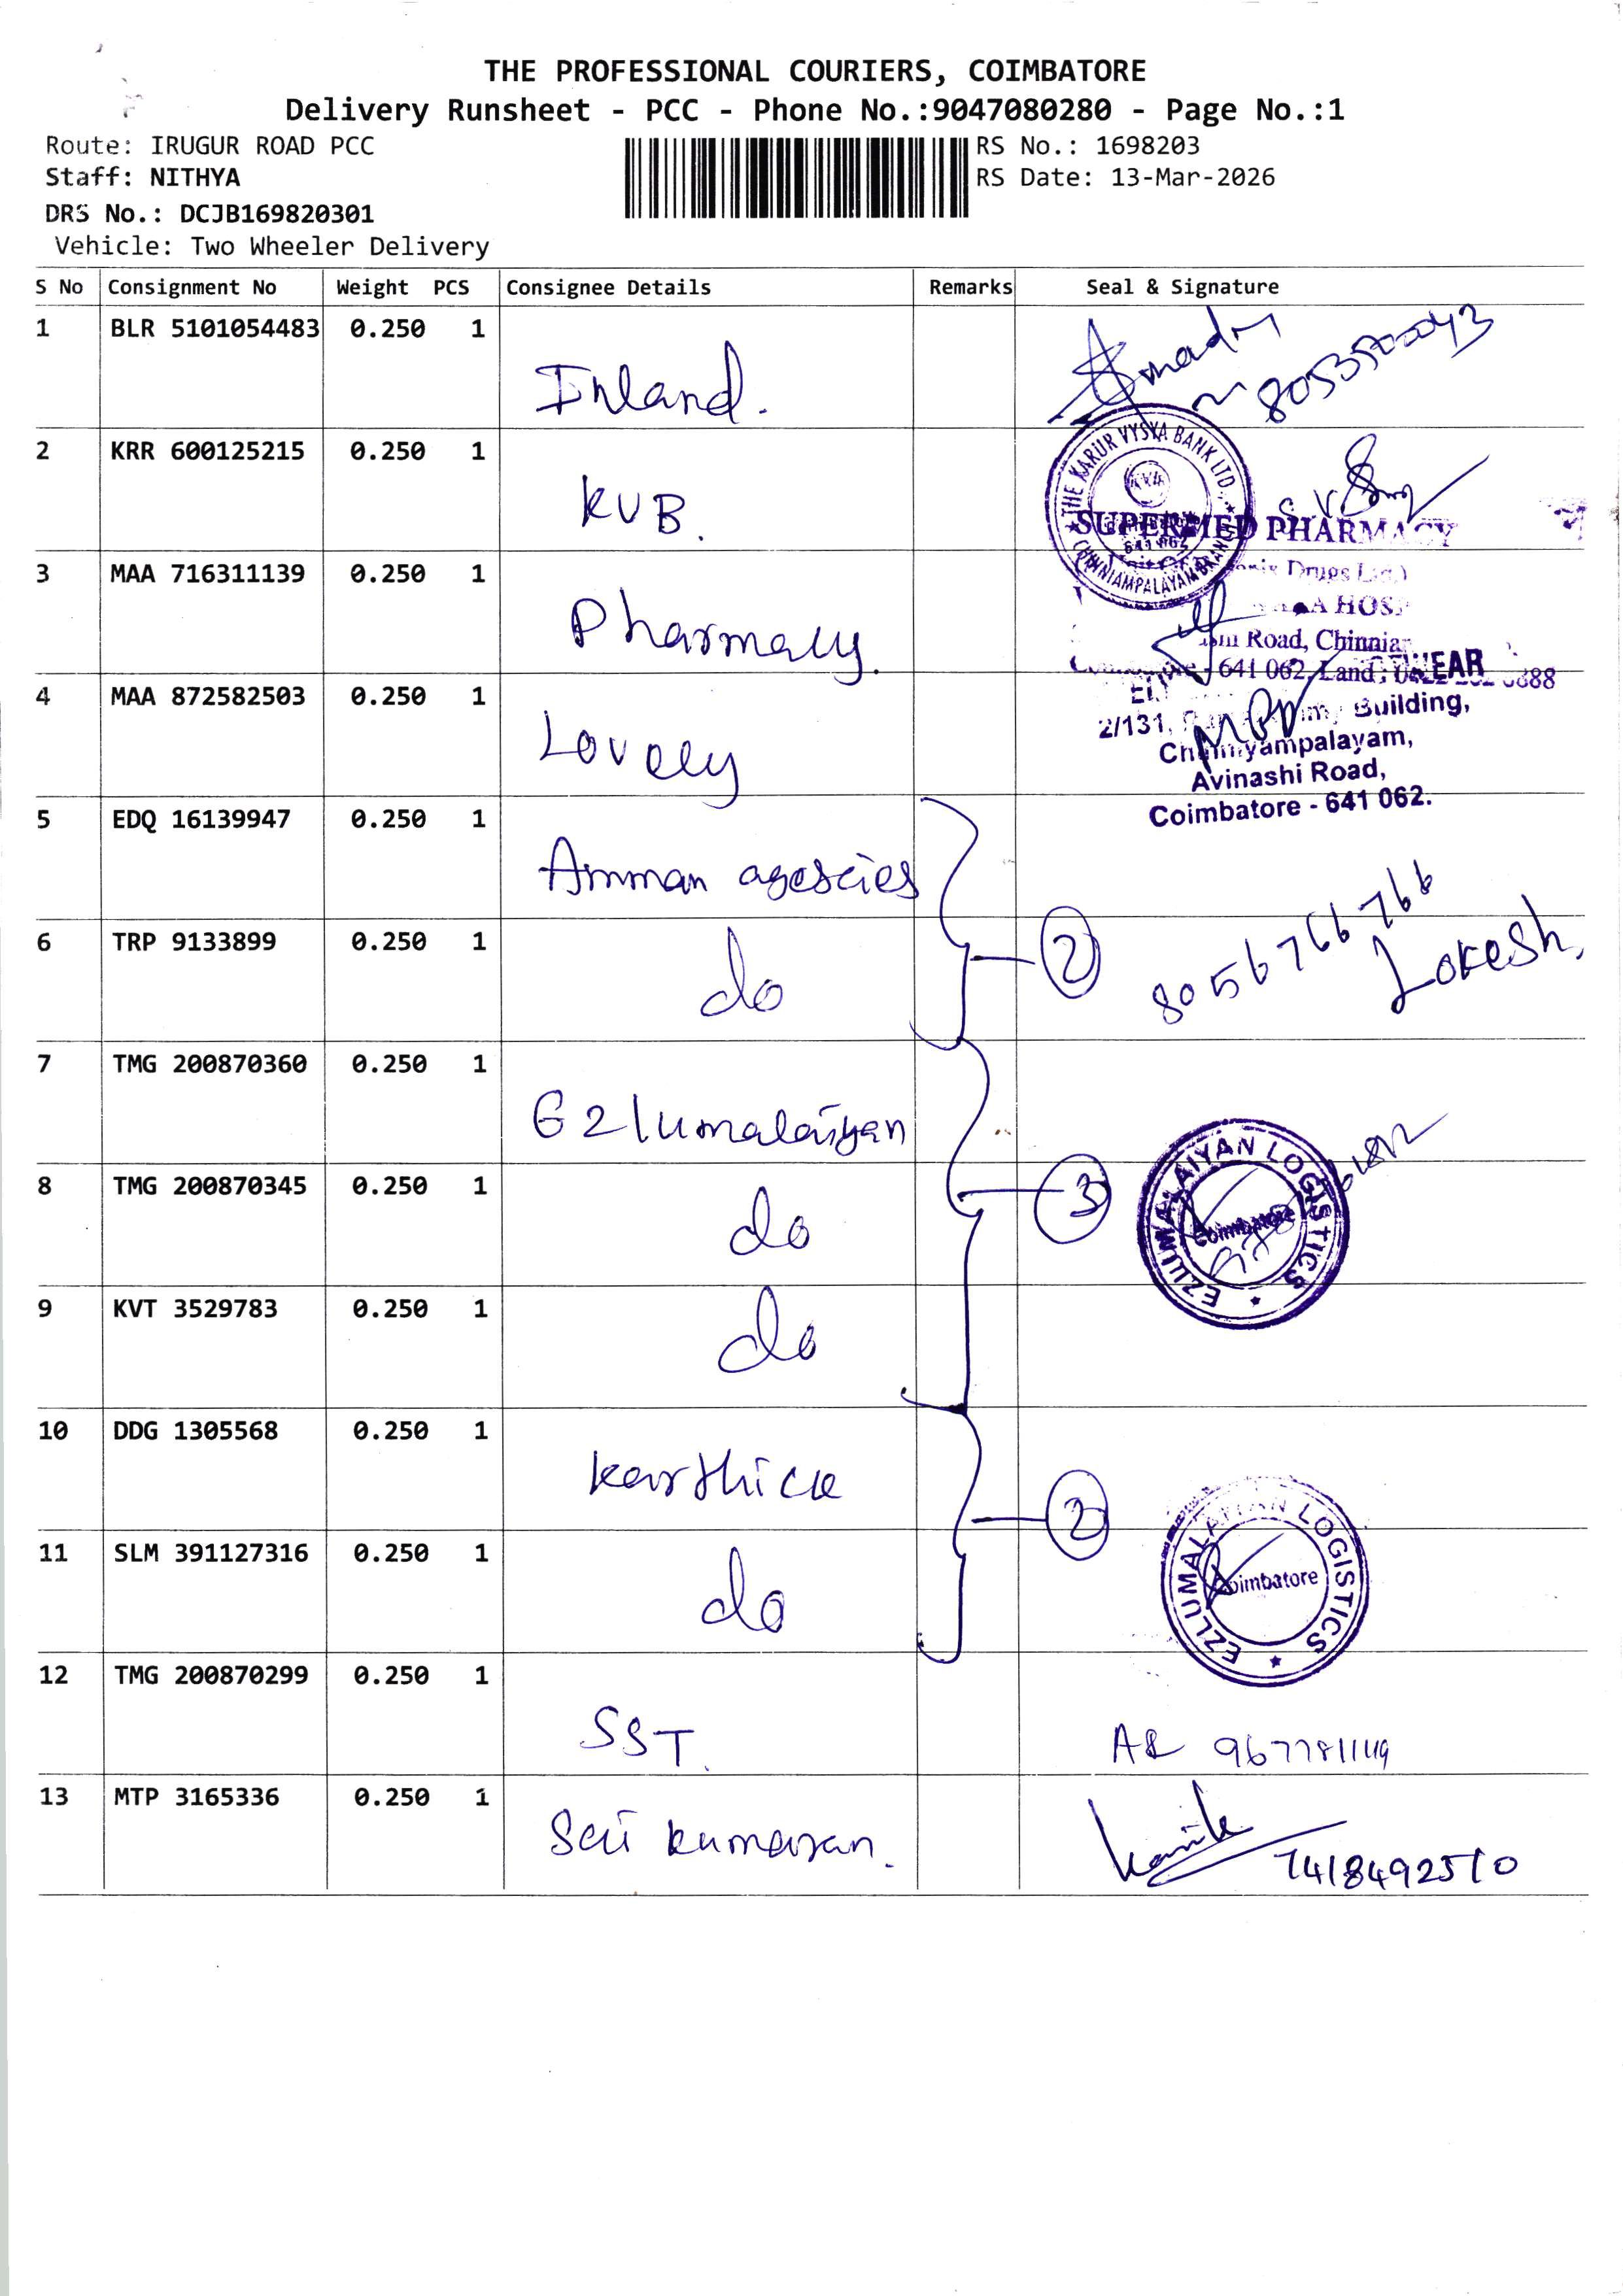 THE PROFESSIONAL COURIERS, COIMBATORE
Delivery Runsheet - PCC - Phone No.:9047080280 - Page No.:1
Route: IRUGUR ROAD PCC
RS No.: 1698203
Staff: NITHYA
RS Date: 13-Mar-2026
DRS No.: DCJB169820301
Vehicle: Two Wheeler Delivery
S No Consignment No Weight PCS Consignee Details Remarks Seal & Signature
1 BLR 5101054483 0.250 1
Inland.
2 KRR 600125215 0.250 1
KVB.
THE KARUR VYSYA BANK LTD.
CHINNIAMPALAYAM BRANCH
641 062
SUPERMED PHARMACY
3 MAA 716311139 0.250 1
Drugs
Pharmacy.
Road,
641 062, Land :
4 MAA 872582503 0.250 1
Lovely
2/131, Building,
Chinniyampalayam,
Avinashi Road,
Coimbatore - 641 062.
5 EDQ 16139947 0.250 1
Amman agescies
6 TRP 9133899 0.250 1
do 2 8056766766 Lokesh,
7 TMG 200870360 0.250 1
Ezlumalaiyan
8 TMG 200870345 0.250 1
do 3
EZLUMALAIYAN LOGISTICS
Coimbatore
9 KVT 3529783 0.250 1
do
10 DDG 1305568 0.250 1
karthick
2
11 SLM 391127316 0.250 1
do
EZLUMALAIYAN LOGISTICS
Coimbatore
12 TMG 200870299 0.250 1
SST.
13 MTP 3165336 0.250 1
Sai kumaran.
7418492510